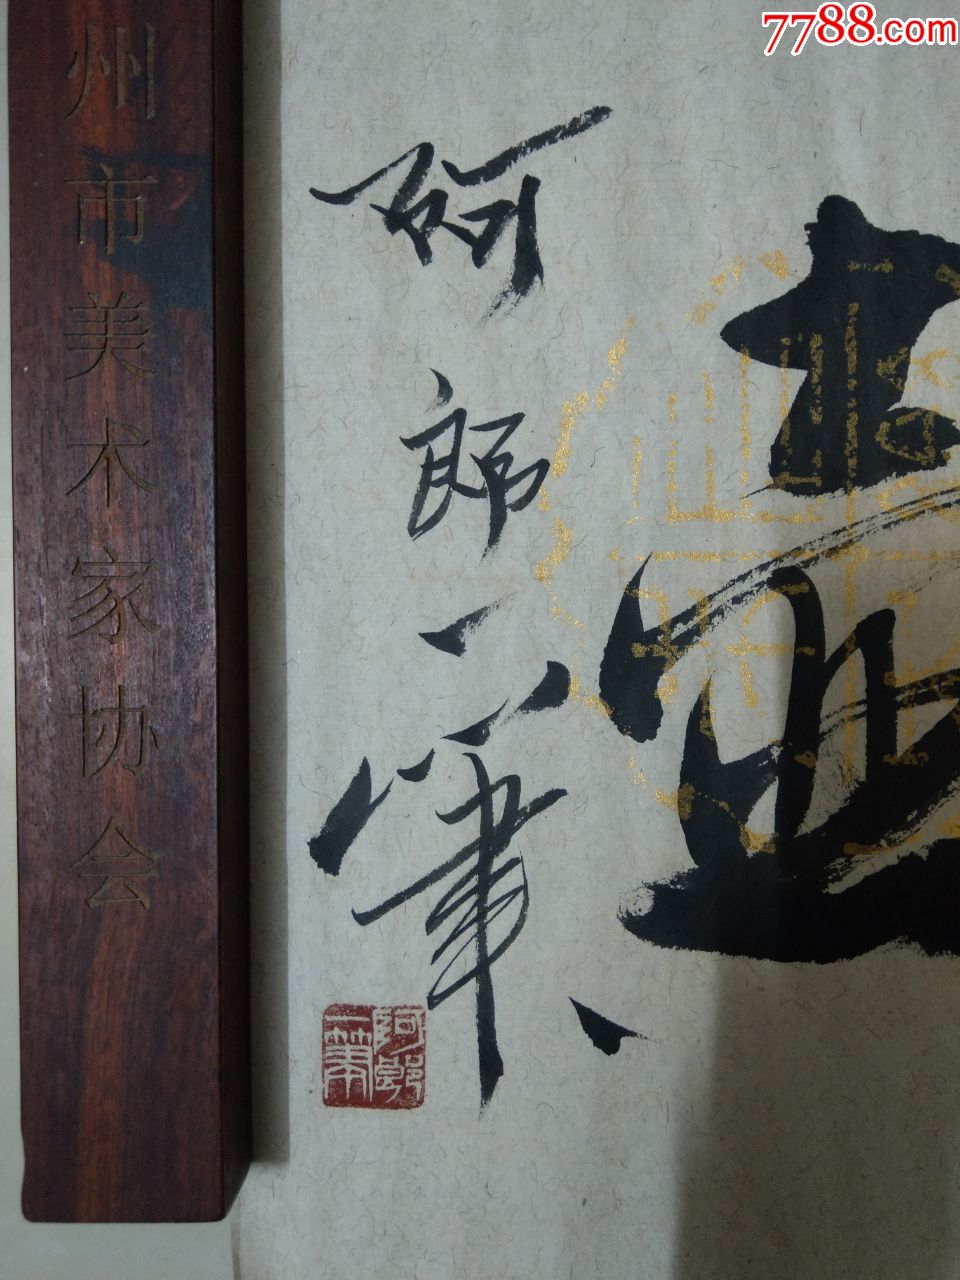 7788.com
州市美术家协会
阿郎一笔
阿郎
一笔